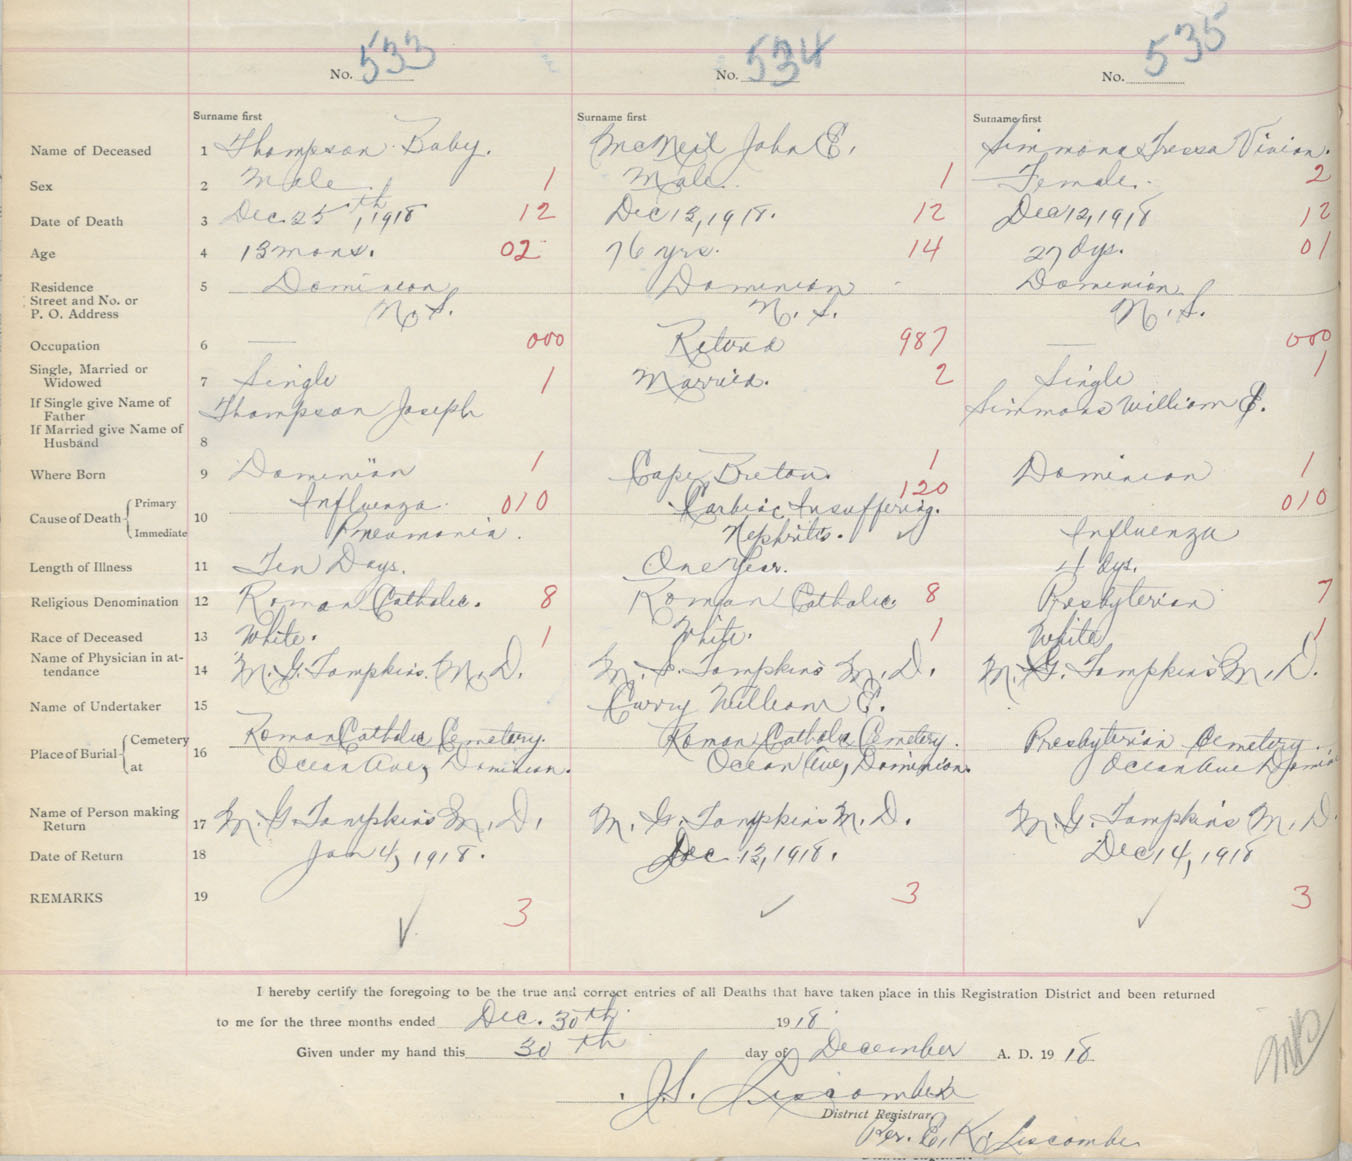 No. 533 No. 534 No. 535
Surname first Surname first Surname first
Name of Deceased 1 Thompson Baby. McNeil John E. Simmons Tressa Vivian.
Sex 2 Male. 1 Male. 1 Female. 2
Date of Death 3 Dec. 25th, 1918 12 Dec 12, 1918. 12 Dec 12, 1918 12
Age 4 13 mons. 02 76 yrs. 14 27 dys. 01
Residence 5 Dominion Dominion Dominion
Street and No. or
P. O. Address N. S. N. S. N. S.
Occupation 6 — 000 Retired 987 — 000
Single, Married or
Widowed 7 Single 1 Married. 2 Single 1
If Single give Name of
Father Thompson Joseph Simmons William E.
If Married give Name of
Husband 8
Where Born 9 Dominion 1 Cape Breton. 1 Dominion 1
Cause of Death Primary 10 Influenza. 010 Carbiac Insuffering. 120 010
Immediate Pneumonia. Nephritis. Influenza
Length of Illness 11 Ten Days. One Year. 4 dys.
Religious Denomination 12 Roman Catholic. 8 Roman Catholic 8 Presbyterian 7
Race of Deceased 13 White. 1 White. 1 White 1
Name of Physician in at-
tendance 14 M. G. Tompkins. M. D. M. G. Tompkins M. D. M. G. Tompkins M. D.
Name of Undertaker 15 Curry William E.
Place of Burial Cemetery 16 Roman Catholic Cemetery. Roman Catholic Cemetery. Presbyterian Cemetery.
at Ocean Ave, Dominion. Ocean Ave, Dominion. Ocean Ave Dominion
Name of Person making
Return 17 M. G. Tompkins M. D. M. G. Tompkins M. D. M. G. Tompkins M. D.
Date of Return 18 Jan 4, 1918. Dec 12, 1918. Dec 14, 1918
REMARKS 19 3 3 3
I hereby certify the foregoing to be the true and correct entries of all Deaths that have taken place in this Registration District and been returned
to me for the three months ended Dec. 30th. 1918
Given under my hand this 30th day of December A. D. 1918
Liscombe
District Registrar.
Per. E. K. Liscombe